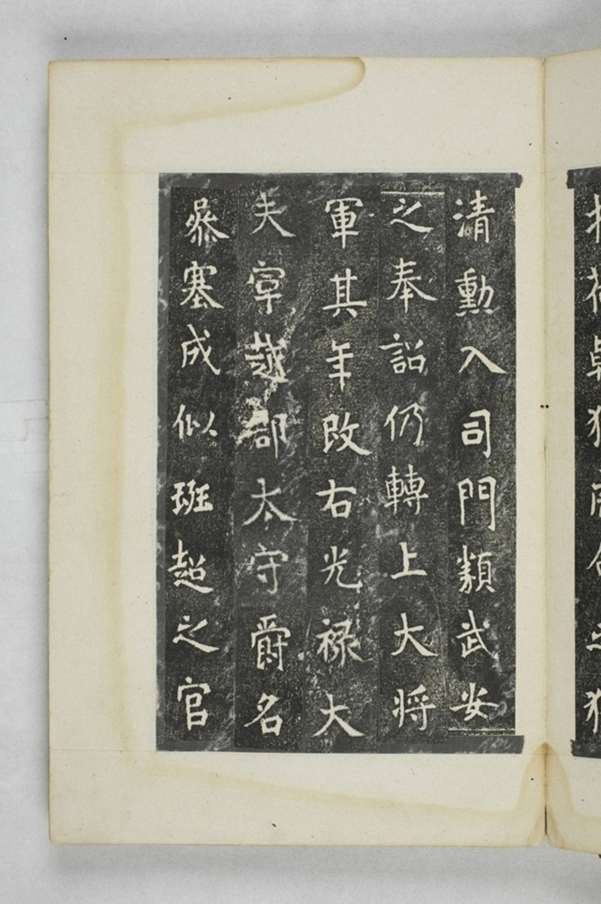 清勳入司門類武安
之奉詔仍轉上大将
軍其年改右光禄大
夫宰越郡太守爵名
塞成似班超之官